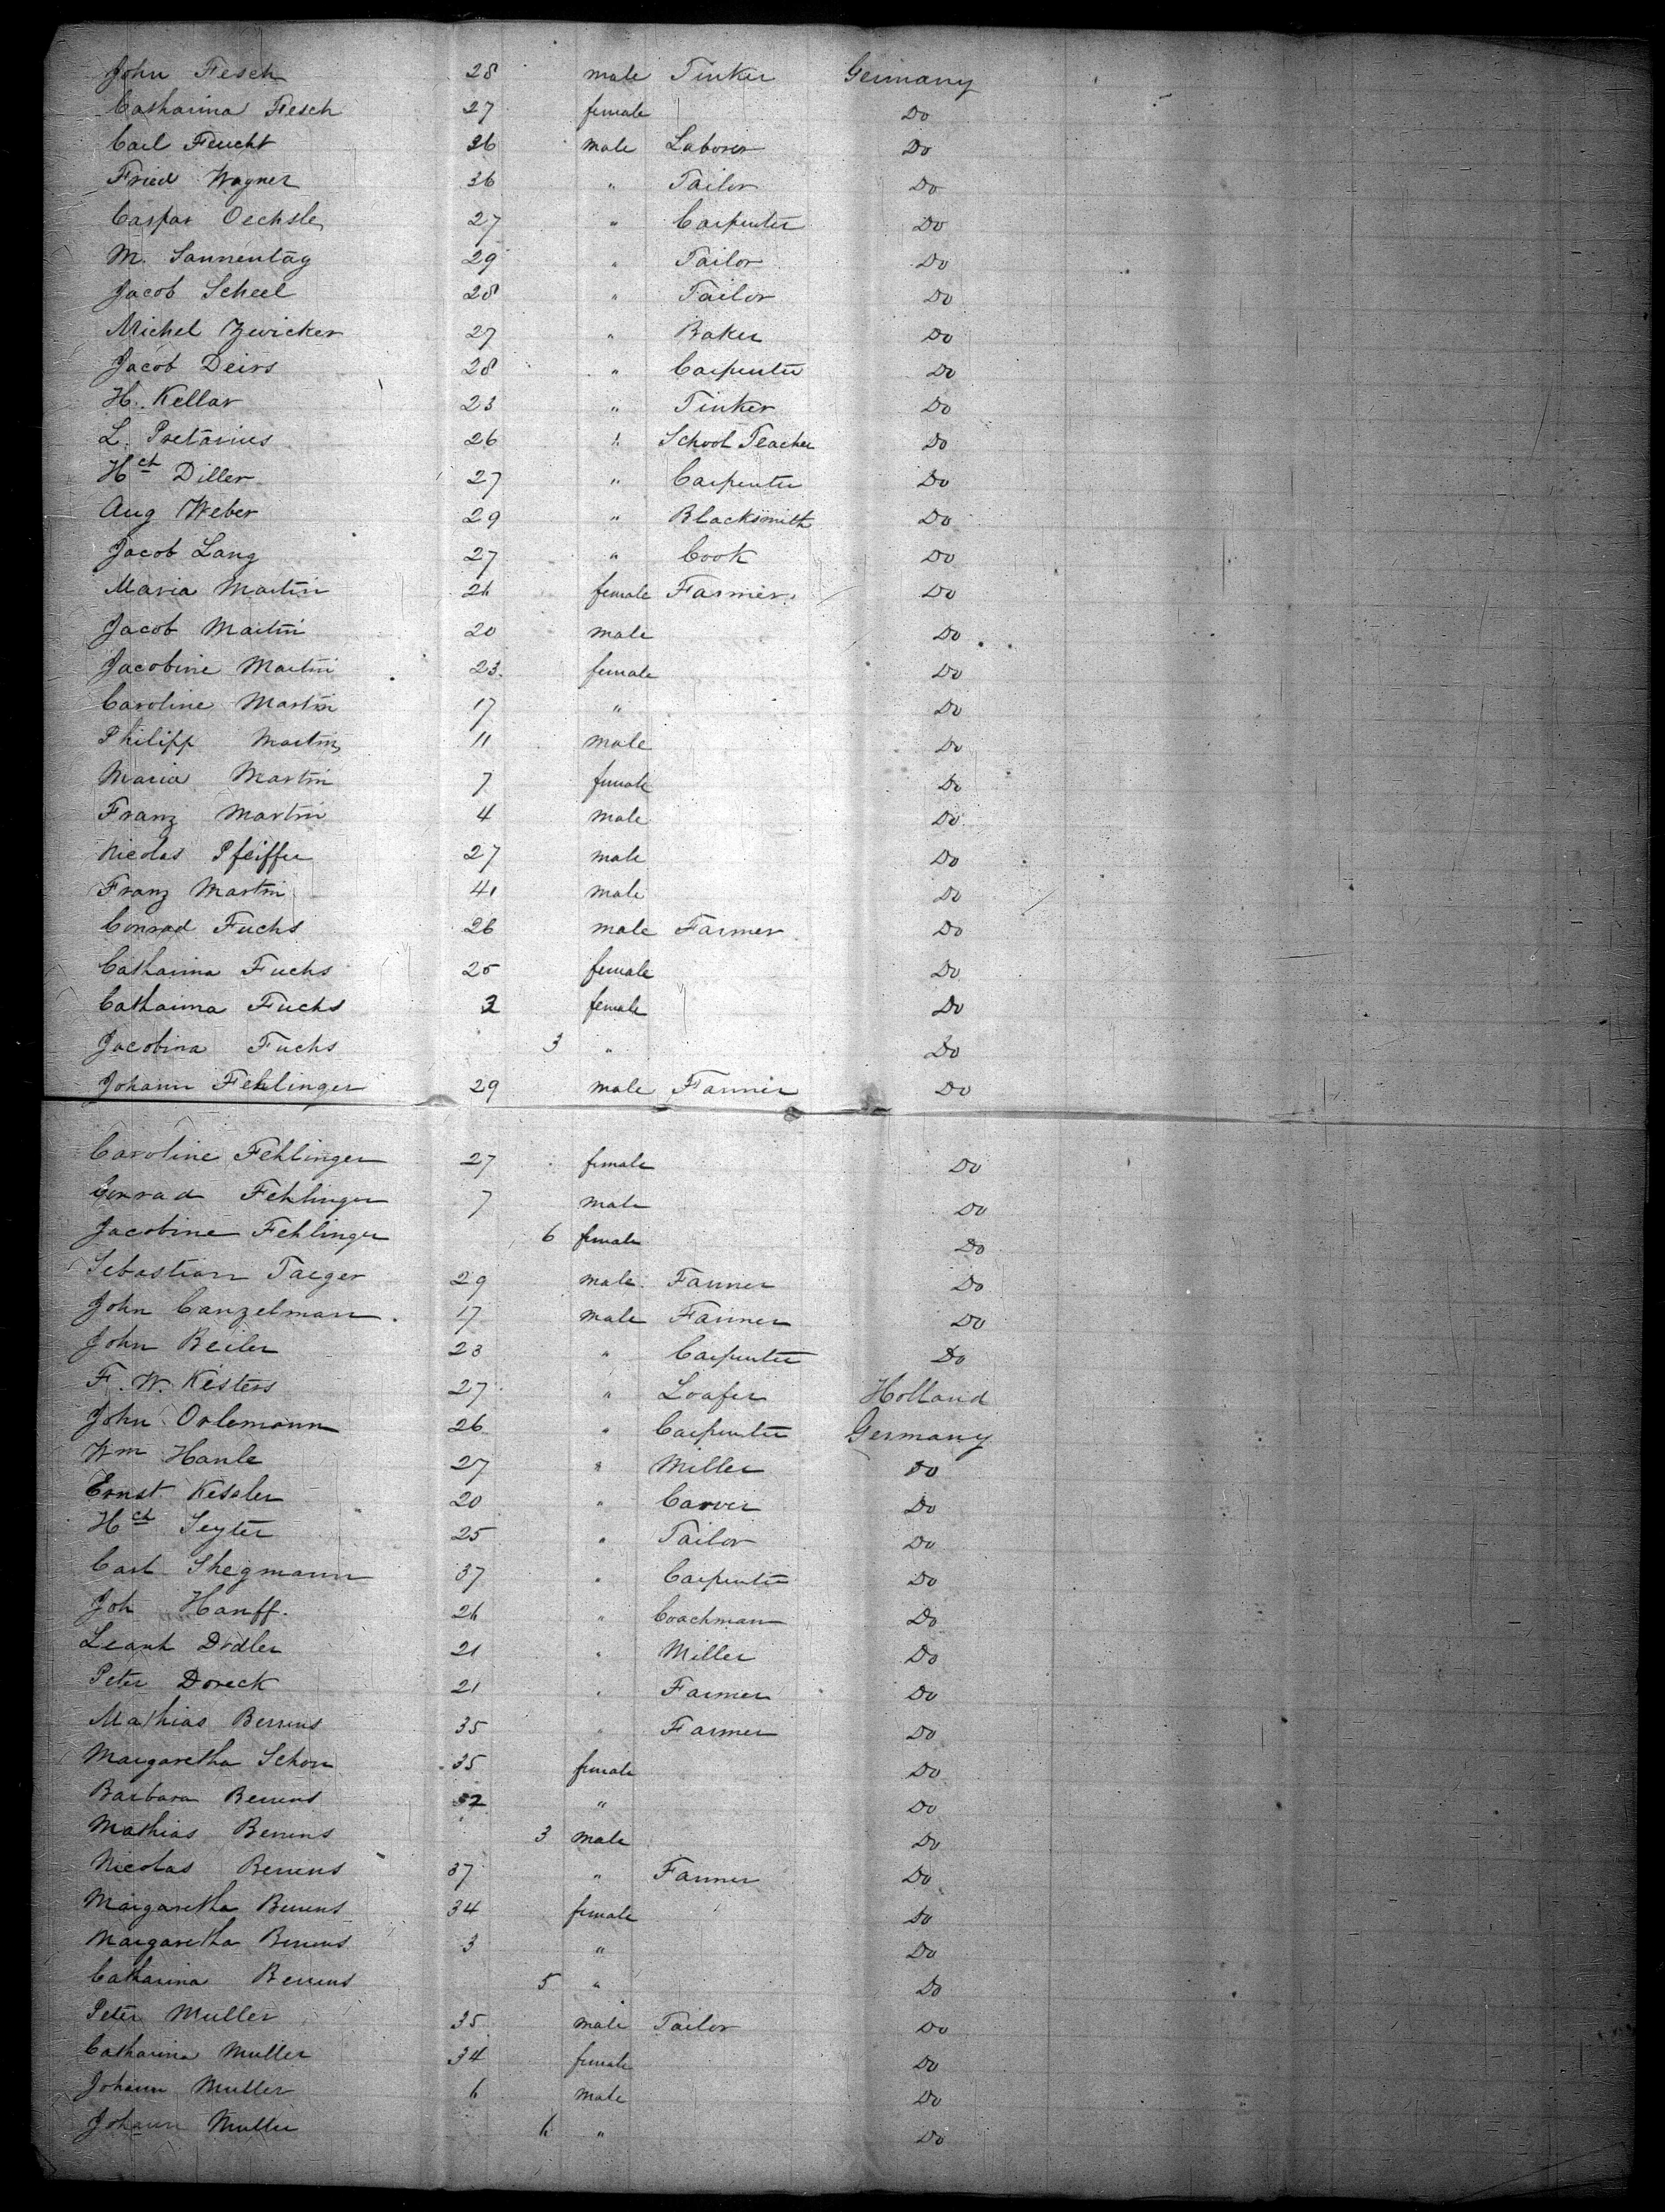 John Fesch 28 male Tinker Germany
Catharina Fesch 27 female Do
Carl Feucht 26 male Laborer Do
Fried Wagner 36 " Tailor Do
Caspar Oechsle 27 " Carpenter Do
M. Sannentag 29 " Tailor Do
Jacob Scheel 28 " Tailor Do
Michel Zwicker 27 " Baker Do
Jacob Deirs 28 " Carpenter Do
H. Kellar 23 " Tinker Do
L. Pretarius 26 " School Teacher Do
Hch Diller 27 " Carpenter Do
Aug Weber 29 " Blacksmith Do
Jacob Lang 27 " Cook Do
Maria Martin 26 female Farmer Do
Jacob Martin 20 male Do
Jacobine Martin 23 female Do
Caroline Martin 17 " Do
Philipp Martin 11 male Do
Maria Martin 7 female Do
Franz Martin 4 male Do
Nicolas Pfeiffer 27 male Do
Franz Martin 41 male Do
Conrad Fuchs 26 male Farmer Do
Catharina Fuchs 25 female Do
Catharina Fuchs 2 female Do
Jacobina Fuchs 3 " Do
Johann Fehlinger 29 male Farmer Do
Caroline Fehlinger 27 female Do
Conrad Fehlinger 7 male Do
Jacobine Fehlinger 6 female Do
Sebastian Taeger 29 male Farmer Do
John Canzelman 17 male Farmer Do
John Beiler 23 " Carpenter Do
F. W. Kesters 27 " Loafer Holland
John Orlemann 26 " Carpenter Germany
Wm Hanle 27 " Miller Do
Ernst Kessler 20 " Carver Do
Hch Seyter 25 " Tailor Do
Carl Shegmann 37 " Carpenter Do
Joh Hanff. 26 " Coachman Do
Drdler 21 " Miller Do
Peter Doreck 21 " Farmer Do
Mathias Berrens 35 " Farmer Do
Margaretha Schon 35 female Do
Barbara Berrens " Do
Mathias Berrens 3 male Do
Nicolas Berrens 37 " Farmer Do
Margaretha Berrens 34 female Do
Margaretha Berrens 3 " Do
Catharina Berrens 5 " Do
Peter Muller 35 male Tailor Do
Catharina Muller 34 female Do
Johann Muller 6 male Do
Johann Muller 6 " Do